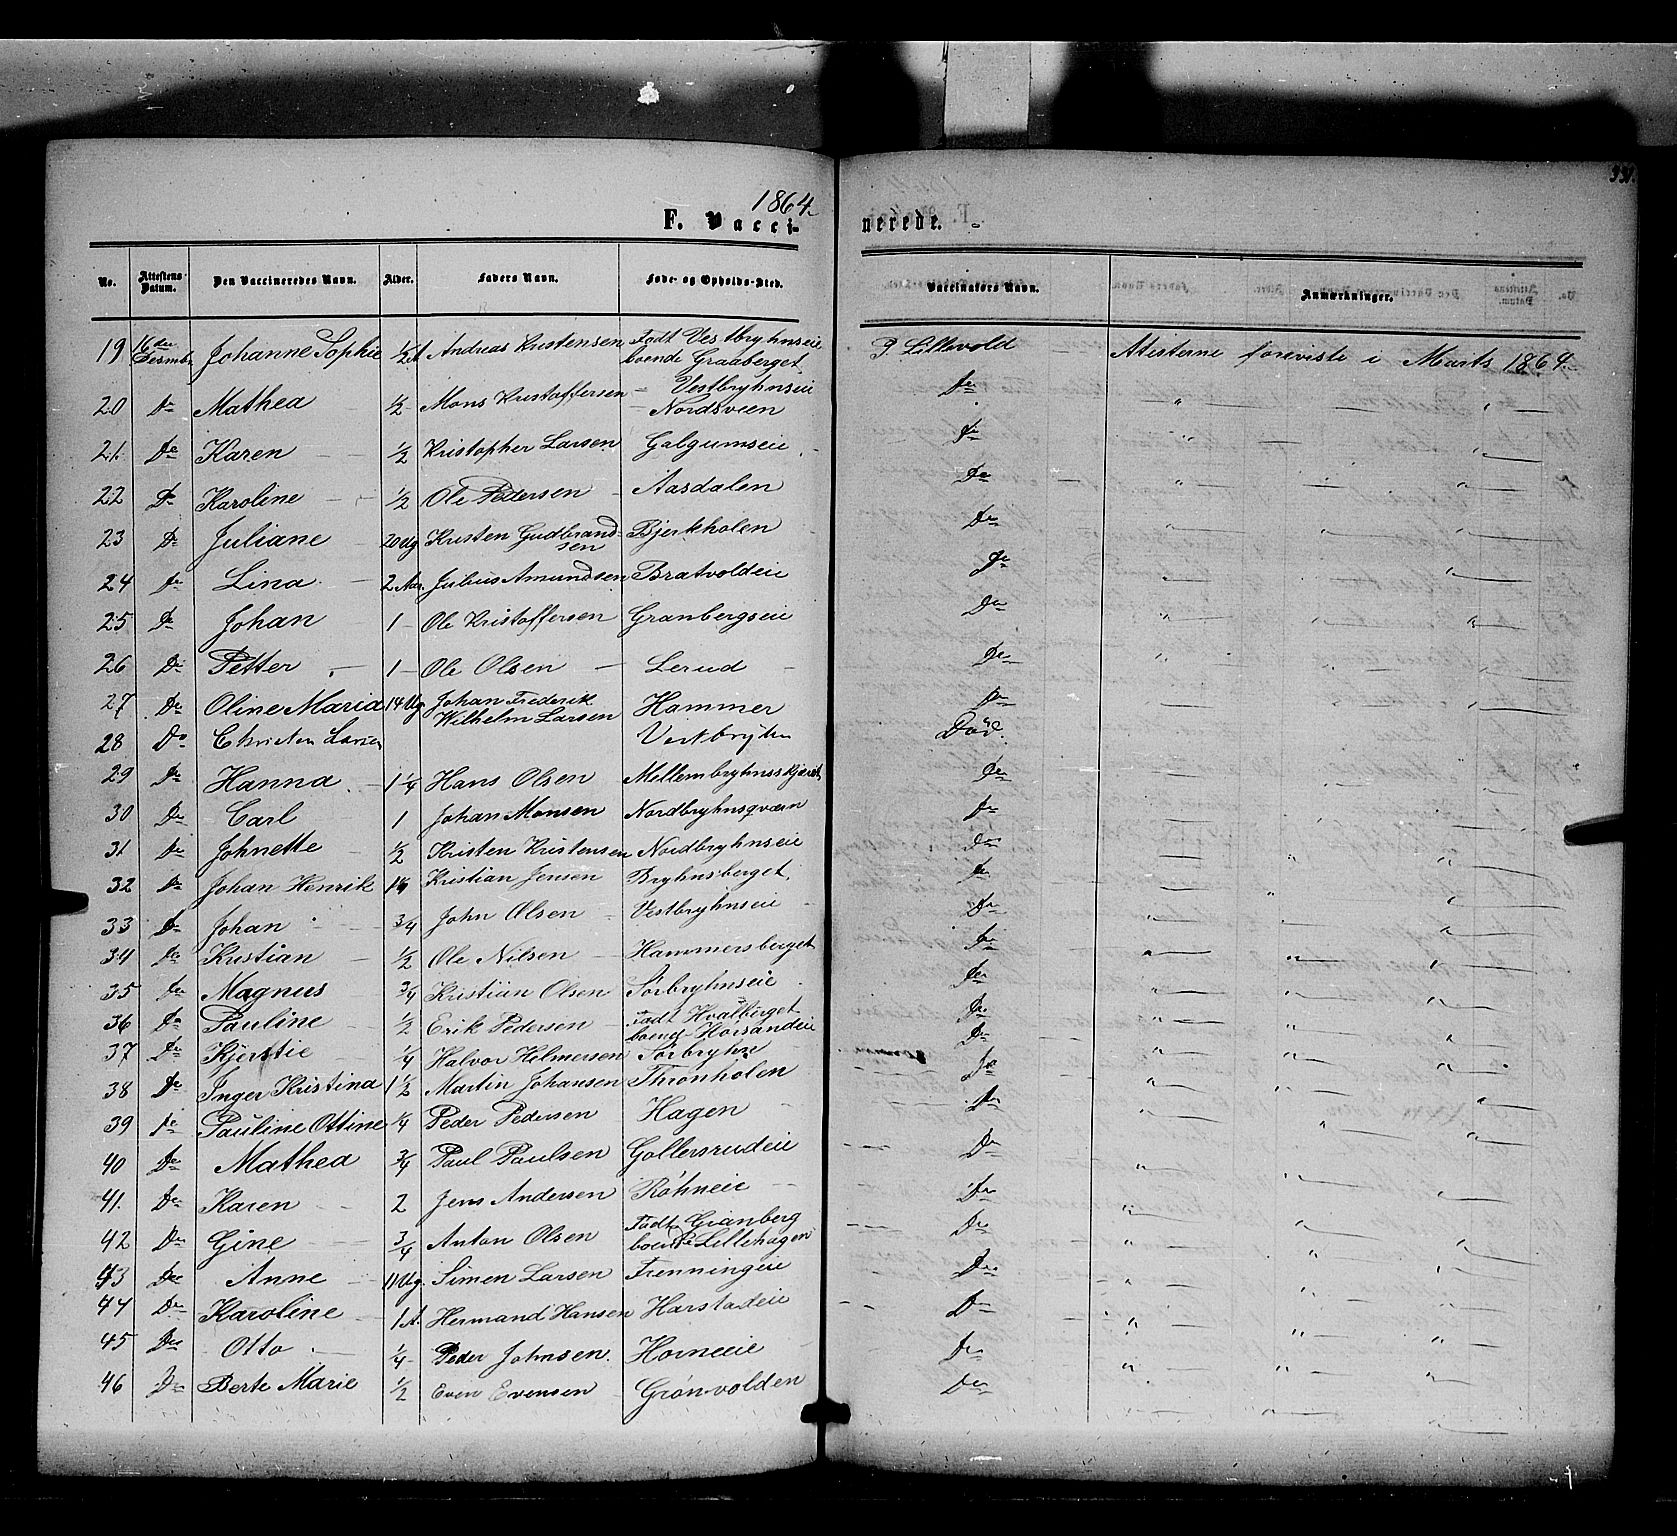 331.
1864.
F. Vacci-
nerede.
No. Attestens Datum. Den Vaccineredes Navn. Alder. Faders Navn. Føde- og Opholds-Sted. Vaccinatørs Navn. Anmærkninger.
19 16de Decmb. Johanne Sophie 1/2 A Andreas Kristensen Født Vestbryhnseie boende Graaberget P Lillevold Atesterne foreviste i Marts 1864.
20 Do Mathea 1/2 Mons Kristoffersen Vestbryhnseie Nordsveen Do " "
21. Do Karen 1/2 Kristopher Larsen Galgumseie Do " "
22 Do Karoline 1/2 Ole Pedersen Aasdalen Do " " "
23 Do Juliane 20 Ug Kristen Gudbrandsen Bjerkholen Do " " "
24 Do Lina 2 Aar. Julius Amundsen Bratvoldeie Do " " "
25 Do Johan 1 Ole Kristoffersen Granbergseie Do " " "
26 Do Petter 1 Ole Olsen Lerud Do " " "
27 Do Oline Maria 14 Ug Johan Frederik Wilhelm Larsen Hammer Do " " "
28 Do Christen Larsen Vestbryhn Død.
29 Do Hanna 1 1/4 Hans Olsen Do " " "
30 Do Carl 1 Johan Monsen Nordbryhnsqværn Do " " "
31 Do Johnette 1/2 Kristen Kristensen Nordbryhnseie Do " " "
32 Do Johan Henrik Kristian Jensen Bryhnsberget Do " " "
33 Do Johan 3/4 John Olsen Vestbryhnseie Do " " "
34 Do Kristian 1/2 Ole Nilsen Hammersberget Do " " "
35 Do Magnus 3/4 Kristian Olsen Sørbryhnseie Do " " "
36 Do Pauline 1/2 Erik Pedersen Født Hvalberget boende Horsandeie Do " " "
37 Do Kjerstie 1/4 Halvor Helmersen Sørbryhn Do " " "
38 Do Inger Kristina 1 1/2 Martin Johansen Thronholen Do " " "
39 Do Pauline Ottine 1/4 Peder Pedersen Hagen Do " " "
40 Do Mathea 3/4 Paul Paulsen Gollersrudeie Do " " "
41. Do Karen 2 Jens Andersen Røhneie Do " " "
42 Do Gine 3/4 Anton Olsen Født Granberg boende Lillehagen Do " " "
43 Do Anne 11 Ug. Simen Larsen Frenningeie Do " " "
44 Do Karoline 1 A. Hermand Hansen Harstadeie Do " " "
45 Do Otto 1/4 Peder Johnsen. Horneeie Do " " "
46 Do Berte Marie 1/2 Even Evensen Grønvolden Do " " "